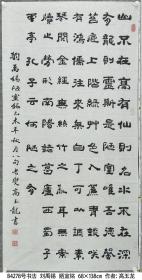 山不在高有仙則名水不在深
有龍則靈斯是陋室惟吾德馨
苔痕上階綠草色入簾青談笑
有鴻儒往來無白丁可以調素
琴閱金經無絲竹之亂耳無案
牘之勞形南陽諸葛廬西蜀子
雲亭孔子云何陋之有
劉禹錫陋室銘乙未年秋月八旬老叟高玉龍書
84276号书法 刘禹锡 陋室铭 68×138cm 作者: 高玉龙